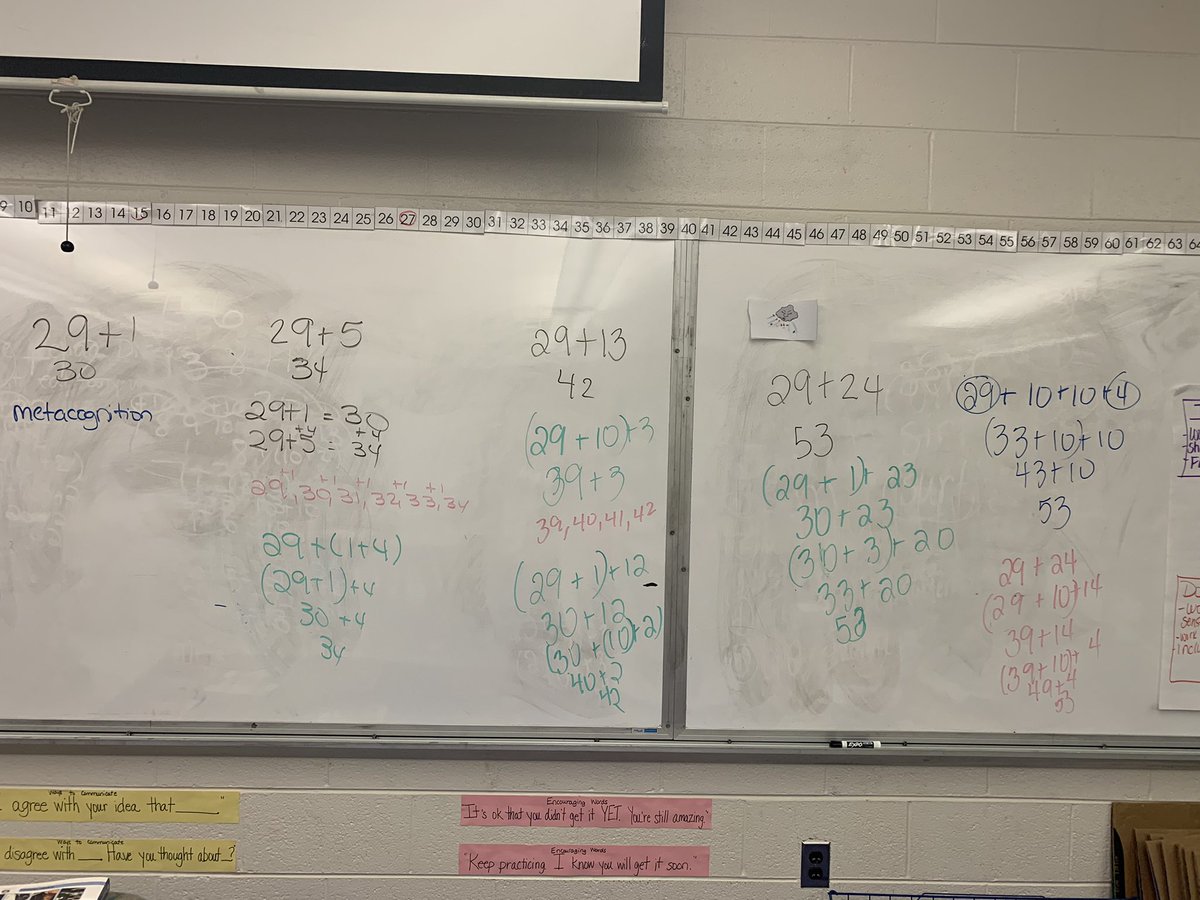 9 10 11 12 13 14 15 16 17 18 19 20 21 22 23 24 25 26 27 28 29 30 31 32 33 34 35 36 37 38 39 40 41 42 43 44 45 46 47 48 49 50 51 52 53 54 55 56 57 58 59 60 61 62 63 64
29+1
30
metacognition
29+5
34
29+1 = 30
+4 +4
29+5 = 34
+1 +1 +1 +1 +1
29, 30, 31, 32, 33, 34
29+(1+4)
(29+1)+4
30+4
34
29+13
42
(29+10)+3
39+3
39, 40, 41, 42
(29+1)+12
30+12
(30+(10)+2)
40+2
42
29+24
53
(29+1)+23
30+23
(30+3)+20
33+20
53
29+10+10+4
(33+10)+10
43+10
53
29+24
(29+10)+14
39+14
(39+10)+4
49+4
53
Ways to Communicate
agree with your idea that ____."
Ways to Communicate
disagree with ___ Have you thought about__?
Encouraging Words
"It's ok that you didn't get it YET. You're still amazing."
Encouraging Words
"Keep practicing I know you will get it soon."
EXPO